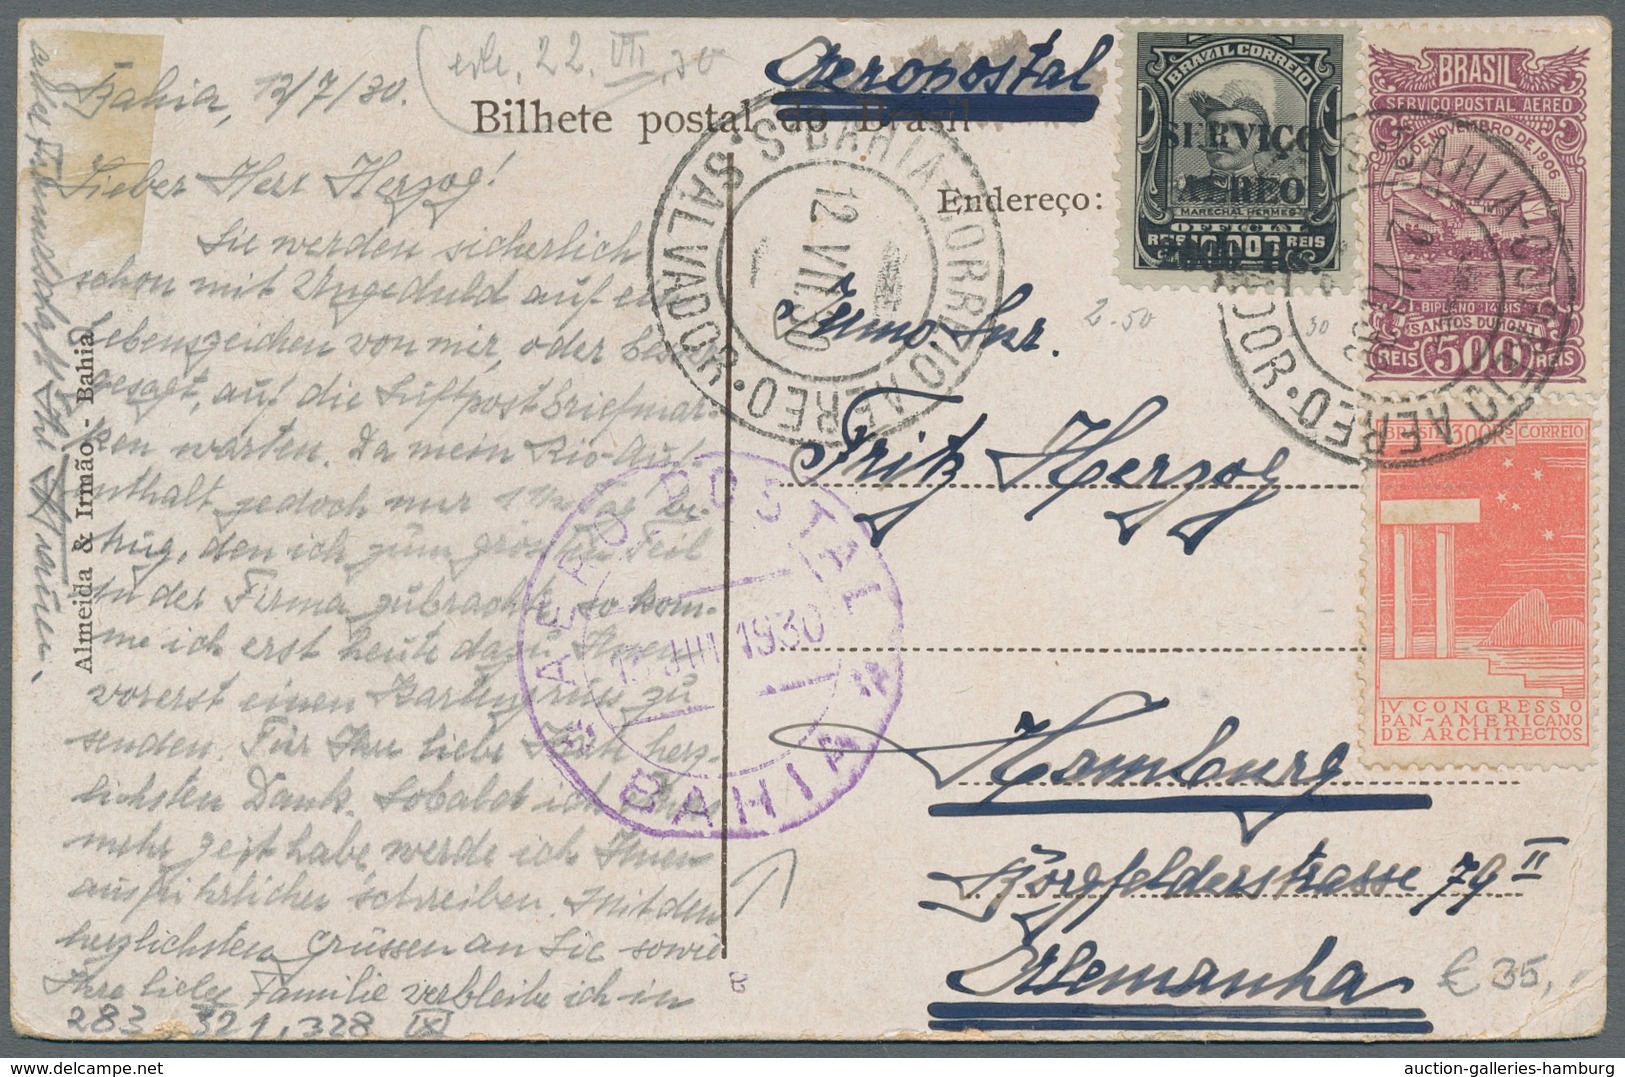 Bahia, 12/7/30.
22. VII. 30
Aeropostal
Bilhete postal do Brasil
Endereço:
Lieber Herr Herzog!
Sie werden sicherlich
schon mit Ungeduld auf ein
Lebenszeichen von mir, oder besser
gesagt, auf die Luftpostbriefmar-
ken warten. Da mein Rio-Auf-
enthalt jedoch nur 1½ be-
trug, den ich zum grössten Teil
in der Firma zubrachte, so kom-
me ich erst heute dazu Ihnen
vorerst einen Kartengruss zu
senden. Für Ihre liebe Karte herz-
lichsten Dank. Sobald ich
mehr Zeit habe, werde ich Ihnen
ausführlicher schreiben. Mit den
herzlichsten Grüssen an Sie sowie
Ihre liebe Familie verbleibe ich in
alter Freundschaft Ihr
283 321, 328 IX
Almeida & Irmão - Bahia
Fritz Herzog
Hamburg
Borgfelderstrasse 79 II
Allemanha
2.50
30
€ 35,
BRAZIL CORREIO
SERVIÇO
AEREO
MARECHAL HERMES
OFFICIAL
REIS 10000 REIS
2000 Rs.
BRASIL
SERVIÇO POSTAL AEREO
DE NOVEMBRO DE 1906
BIPLANO "14 BIS"
SANTOS DUMONT
REIS 500 REIS
BRASIL 300 Rs CORREIO
IV CONGRESSO
PAN-AMERICANO
DE ARCHITECTOS
S. BAHIA-CORREIO AEREO • SALVADOR •
12 VII. 30
S. BAHIA-CORREIO AEREO • SALVADOR •
12 VII 30
AERO POSTAL
JUIL 1930
BAHIA
B
auction-galleries-hamburg